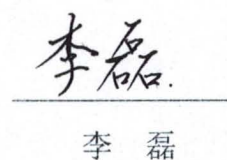 李磊.
李 磊